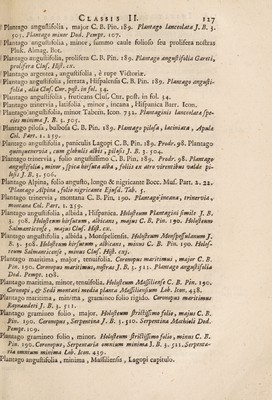 CLASSIS II. 127
Plantago angustifolia, major C. B. Pin. 189. Plantago lanceolata J. B. 3.
505. Plantago minor Dod. Pempt. 107.
Plantago angustifolia, minor, summo caule folioso seu prolifera nostras
Pluk. Almag. Bot.
Plantago angustifolia, prolifera C. B. Pin. 189. Plantago angustifolia Gareti,
prolifera Clus. Hist. cx.
Plantago argentea, angustifolia, è rupe Victoriæ.
Plantago angustifolia, serrata, Hispalensis C. B. Pin. 189. Plantago angusti-
folia, alia Clus. Cur. post. in fol. 34.
Plantago angustifolia, fruticans Clus. Cur. post. in fol. 34.
Plantago trinervia, latifolia, minor, incana, Hispanica Barr. Icon.
Plantago angustifolia, minor Tabern. Icon. 732. Plantaginis lanceolata spe-
cies minima J. B. 3. 505.
Plantago pilosa, bulbosa C. B. Pin. 189. Plantago pilosa, laciniata, Apula
Col. Part. 1. 259.
Plantago angustifolia, paniculis Lagopi C. B. Pin. 189. Prodr. 98. Plantago
quinquenervia, cum globulis albis, pilosis J. B. 3. 504.
Plantago trinervia, folio angustissimo C. B. Pin. 189. Prodr. 98. Plantago
angustifolia, minor, spica hirsuta alba, foliis ex atro virentibus valde pi-
losis J. B. 3. 506.
Plantago Alpina, folio angusto, longo & nigricante Bocc. Mus. Part. 2. 22.
Plantago Alpina, folio nigricante Ejusd. Tab. 5.
Plantago trinervia, montana C. B. Pin. 190. Plantago incana, trinervia,
montana Col. Part. 2. 259.
Plantago angustifolia, albida, Hispanica. Holosteum Plantagini simile J. B.
3. 508. Holosteum hirsutum, albicans, majus C. B. Pin. 190. Holosteum
Salmanticense, majus Clus. Hist. cx.
Plantago angustifolia, albida, Monspeliensis. Holosteum Monspessulanum J.
B. 508. Holosteum hirsutum, albicans, minus C. B. Pin. 190. Holos-
teum Salmanticense, minus Clus. Hist. cxj.
Plantago maritima, major, tenuifolia. Coronopus maritimus, major C. B.
Pin. 190. Coronopus maritimus, nostras J. B. 3. 511. Plantago angustifolia
Dod. Pempt. 108.
Plantago maritima, minor, tenuifolia. Holosteum Massiliense C. B. Pin. 190.
Coronopi, & Sedi montani media planta Massiliensium Lob. Icon. 438.
Plantago maritima, minima, gramineo folio rigido. Coronopus maritimus
Raynaudeti J. B. 3. 511.
Plantago gramineo folio, major. Holosteum strictissimo folio, majus C. B.
Pin. 190. Coronopus, Serpentina J. B. 3. 510. Serpentina Mathioli Dod.
Pempt. 109.
Plantago gramineo folio, minor. Holosteum strictissimo folio, minus C. B.
Pin. 190. Coronopus, Serpentaria omnium minima J. B. 3. 511. Serpenta-
ria omnium minima Lob. Icon. 439.
Plantago angustifolia, minima, Massiliensis, Lagopi capitulo.